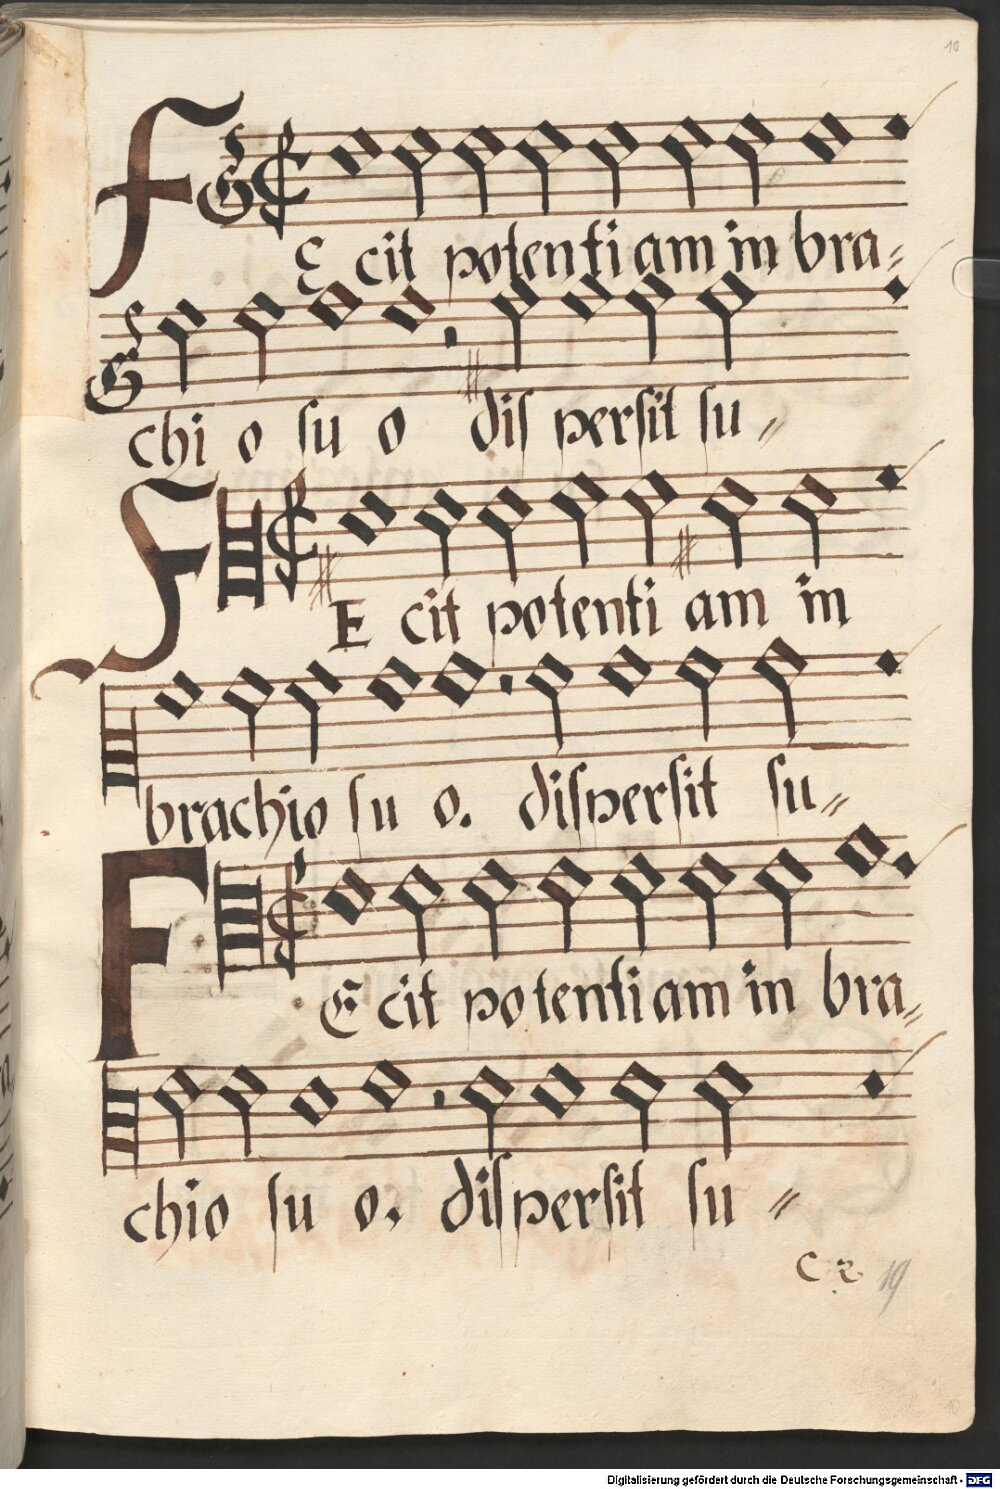 10
FE cit potenti am in bra=
chi o su o dis persit su=
FE cit potenti am in
brachio su o. dispersit su=
FE cit potenti am in bra=
chio su o. dispersit su=
C 2 19
10
Digitalisierung gefördert durch die Deutsche Forschungsgemeinschaft - DFG